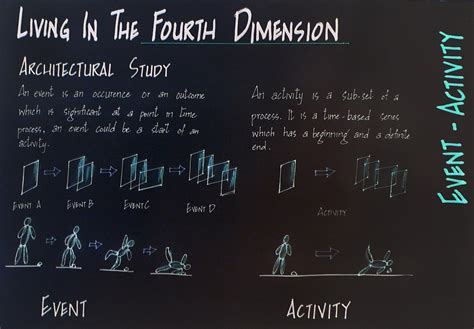 LIVING IN THE FOURTH DIMENSION
ARCHITECTURAL STUDY
An event is an occurence or an outcome
which is significant at a point in time
process, an event could be a start of an
activity.
EVENT A EVENT B EVENT C EVENT D
EVENT
An activity is a sub-set of a
process. It is a time-based series
which has a beginning and a definite
end.
ACTIVITY
ACTIVITY
EVENT - ACTIVITY